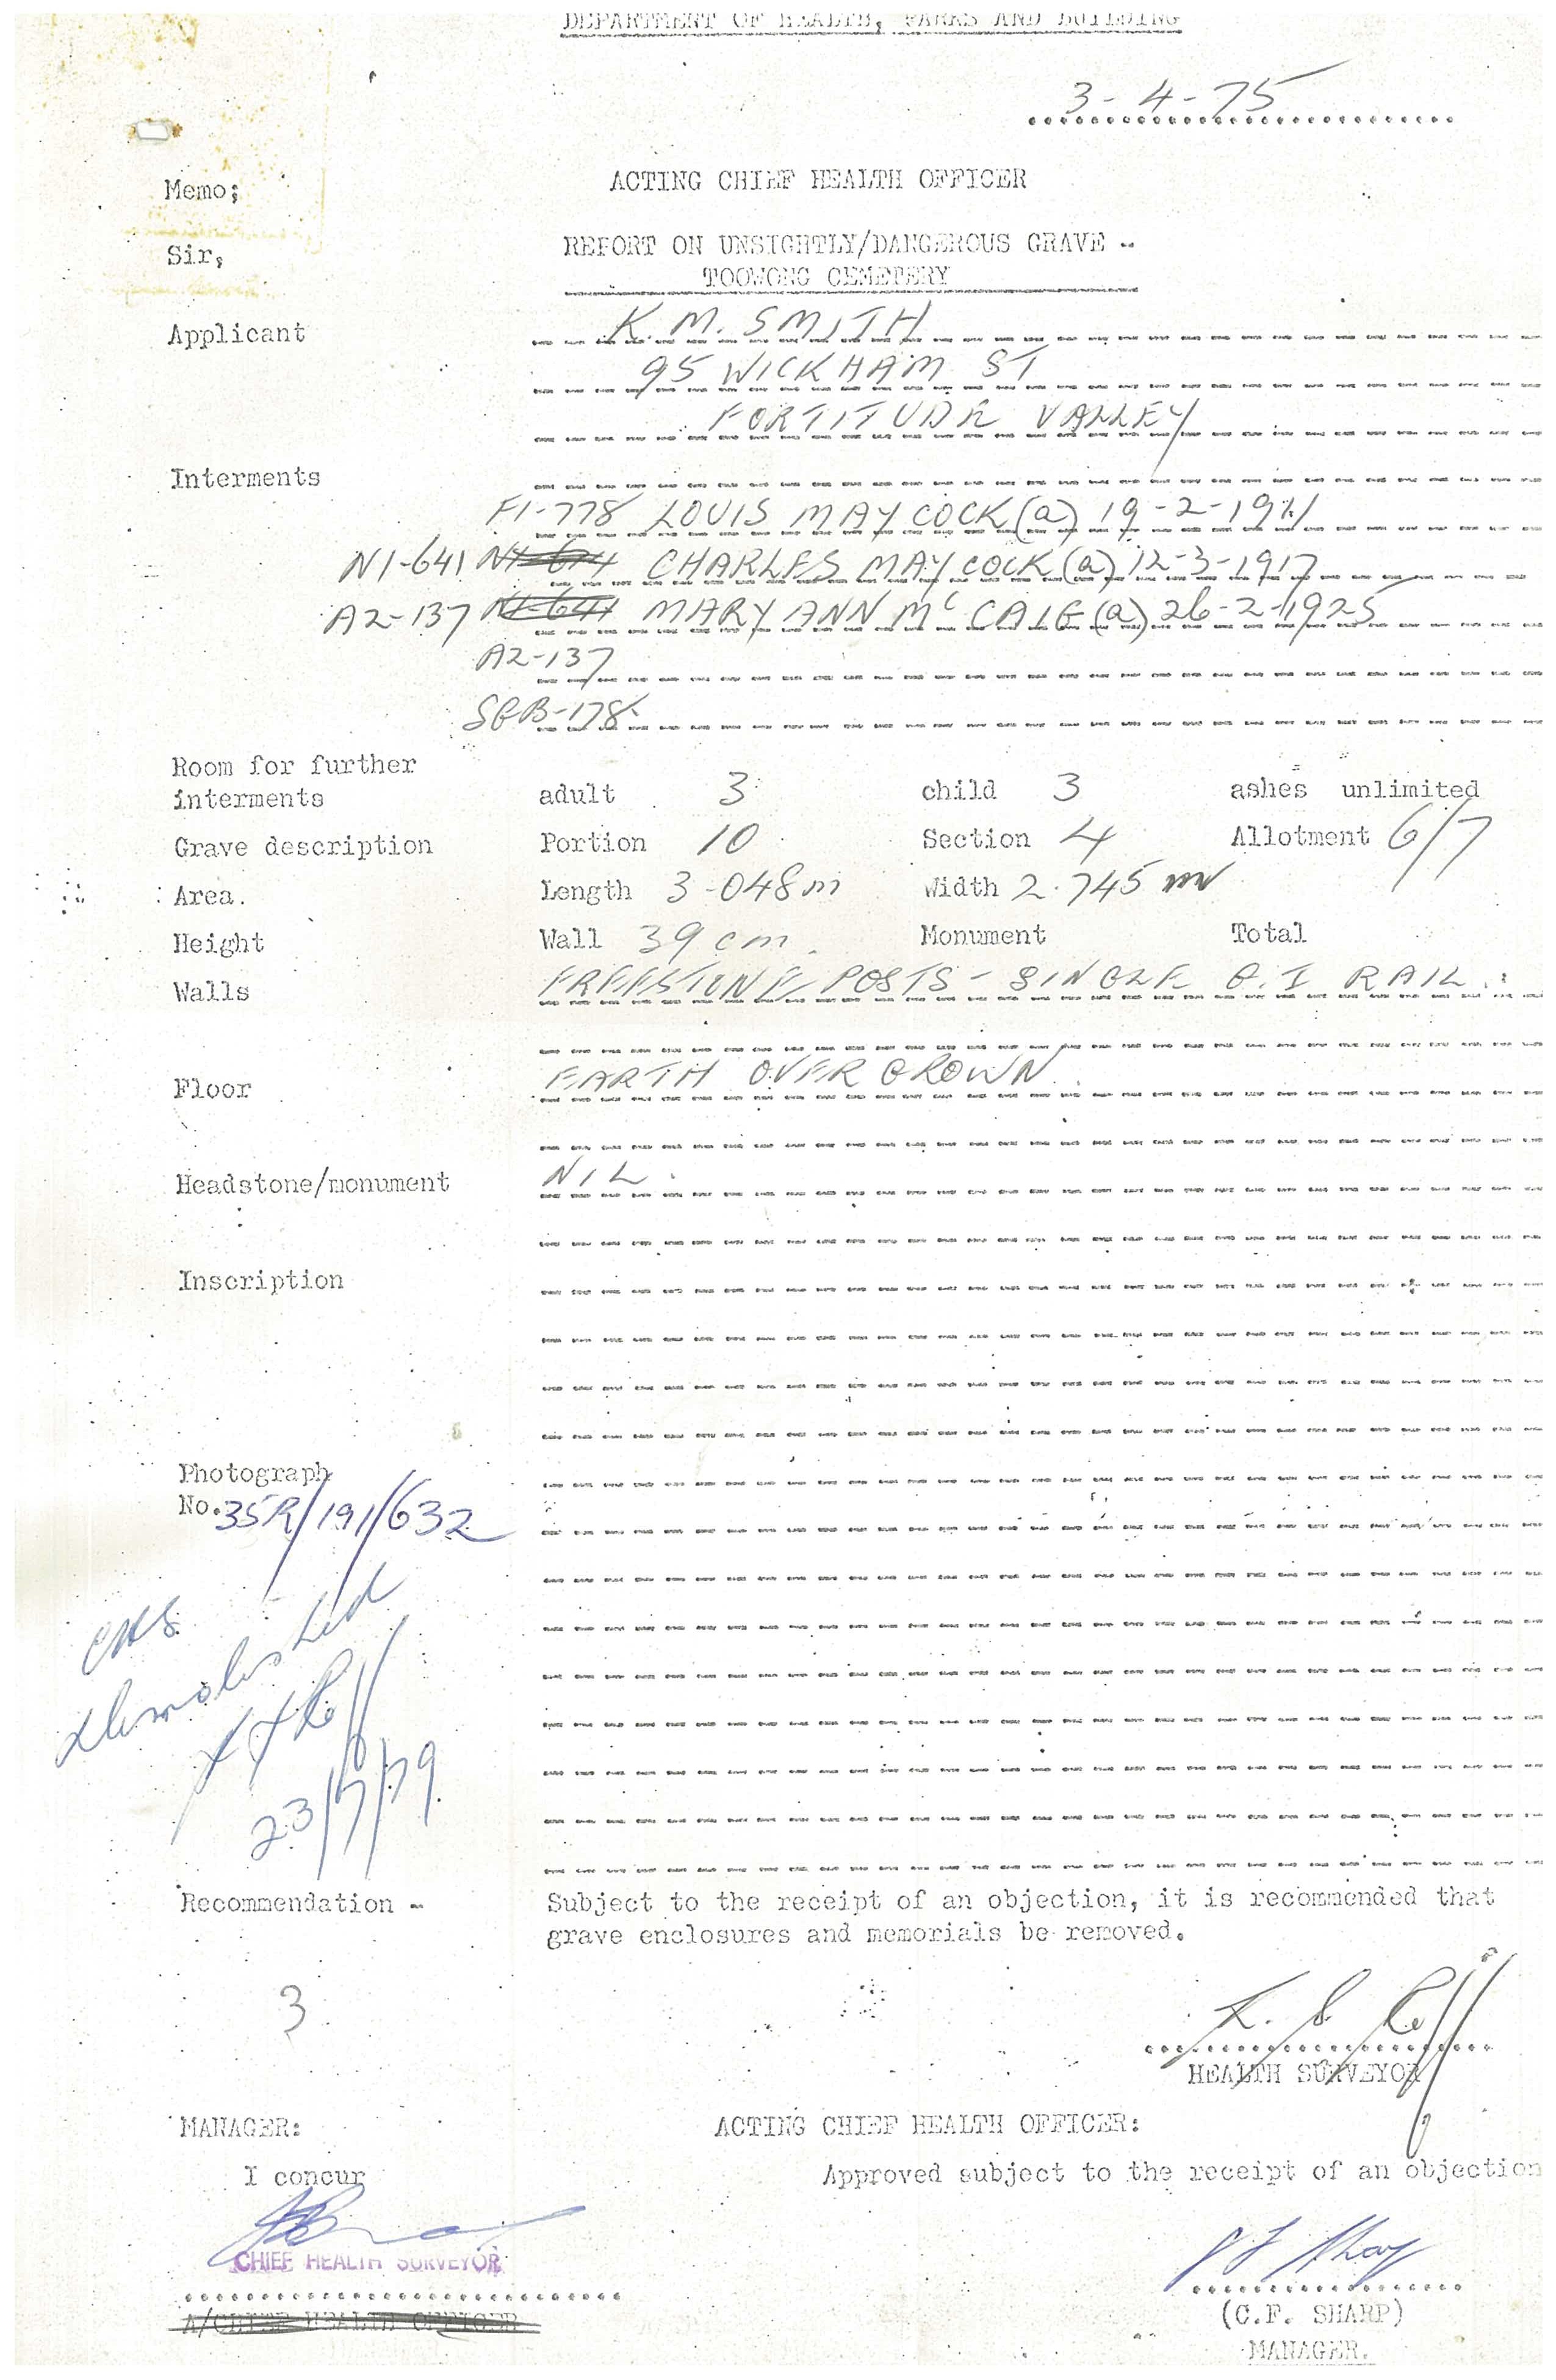 DEPARTMENT OF HEALTH, PARKS AND BUILDING
3-4-75
Memo; ACTING CHIEF HEALTH OFFICER
Sir, REPORT ON UNSIGHTLY/DANGEROUS GRAVE -
TOOWONG CEMETERY
Applicant K. M. SMITH
95 WICKHAM ST
FORTITUDE VALLEY
Interments
F1-778 LOUIS MAYCOCK (a) 19-2-1911
N1-641 N1-674 CHARLES MAYCOCK (a) 12-3-1917
A2-137 N1-641 MARY ANN McCAIG (a) 26-2-1925
A2-137
SGB-178
Room for further
interments adult 3 child 3 ashes unlimited
Grave description Portion 10 Section 4 Allotment 6/7
Area. Length 3-048m Width 2.745 m
Height Wall 39 cm. Monument Total
Walls FREESTONE POSTS - SINGLE G.I RAIL.
Floor EARTH OVERGROWN.
Headstone/monument NIL.
Inscription
Photograph
No. 35R/191/632
CHS
demolished
23/7/79
Recommendation - Subject to the receipt of an objection, it is recommended that
grave enclosures and memorials be removed.
3
HEALTH SURVEYOR
MANAGER: ACTING CHIEF HEALTH OFFICER:
I concur Approved subject to the receipt of an objection
CHIEF HEALTH SURVEYOR
A/CHIEF HEALTH OFFICER
(C.F. SHARP)
MANAGER.